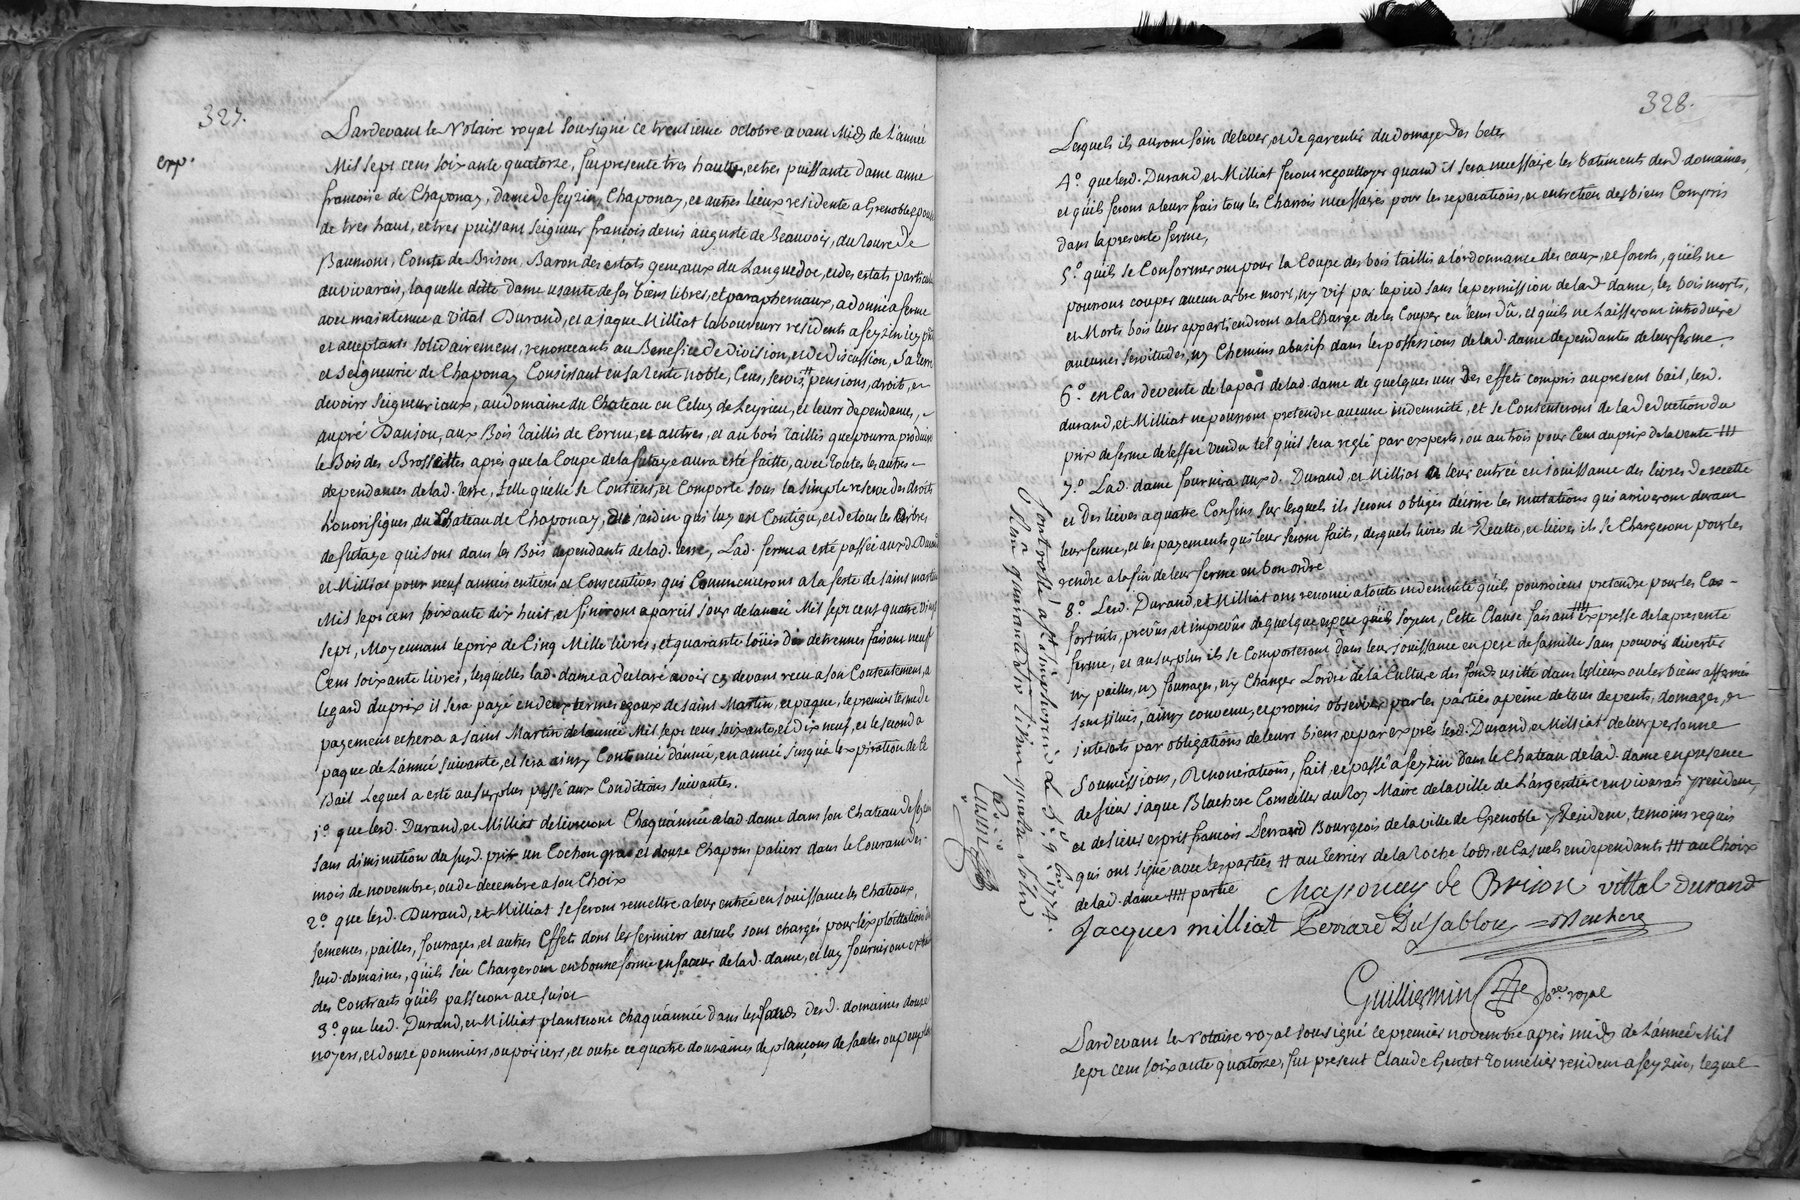 327.
exp.
Pardevant le Notaire royal soussigné ce trentieme octobre avant Midy de l'année
Mil sept cens soixante quatorze, fut presente tres haute, et tres puissante dame anne
francoise de Chaponay, dame de feyzin, Chaponay, et autres lieux residente a Grenoble epouse
de tres haut, et tres puissant seigneur françois denis auguste de Beauvoir, du Roure de
Baumont, Comte de Brison, Baron des estats generaux du Languedoc, et des estats particuliers
du vivarais, laquelle ditte dame usante de ses biens libres, et paraphernaux, a donné a ferme
avec maintenue a Vital Durand, et a jaque Milliat laboureurs residents a feyzin icy pnts
et acceptants solidairement, renonceants au Benefice de Division, et de discussion, sa terre
et seigneurie de Chaponay Consistant en sa rente noble, Cens, servis, # pensions, droits, et
devoirs seigneuriaux, au domaine du Chateau en Celuy de Leyrieu, et leurs dependances,
au pré Danjou, aux Bois taillis de Cornu, et autres, et au bois taillis que pourra produire
le Bois des Brossettes après que la Coupe de la futaye aura esté faitte, avec toutes les autres
dependances de lad. terre, telle qu'elle se Contient, et Comporte sous la simple reserve des droits
honorifiques, du Chateau de Chaponay, du jardin qui luy est Contigu, et de tous les arbres
de futaye qui sont dans les Bois dependants de lad. terre, Lad. ferme a esté passée auxd. Durand
et Milliat pour neuf années entieres et Consecutives qui Commenceront a la feste de saint martin
Mil sept cens soixante dix huit, et finiront a pareil jour de l'année Mil sept cent quatre vingt
sept, Moyennant le prix de Cinq Mille livres, et quarante loüis d'or detrennes faisant neuf
Cens soixante livres, lesquelles lad. dame a declaré avoir cy devant receu a son Contentement, a
legard du prix il sera payé en deux termes egaux de saint Martin, et paque, le premier terme de
payement echerra a saint Martin de l'année Mil sept cens soixante, et dix neuf, et le second a
paque de l'année suivante, et sera ainsy Continué d'année, en année jusqu'a lexpiration de le
Bail Lequel a esté au surplus passé aux Conditions suivantes.
1.º que lesd. Durand, et Milliat delivreront Chaqu'année a lad. dame dans son Chateau de feyzin
sans diminution du susd. prix un Cochon gras et douze Chapons paliers dans le Courant des
mois de novembre, ou de decembre a son Choix
2.º que lesd. Durand, et Milliat se feront remettre a leur entrée en jouissance les Chateaux,
semences, pailles, fourrages, et autres Effets dont les fermiers actuels sont chargés pour l'exploittation des
susd. domaines, qu'ils s'en Chargeront en bonne forme en faveur de lad. dame, et luy fourniront extrait
des Contracts qu'ils passeront a ce sujet
3.º que lesd. Durand, et Milliat planteront chaqu'année dans les fonds desd. domaines douze
noyers, et douze pommiers, ou poiriers, et outre ce quatre douzaines de plançons de saules ou peupliers
328.
Lesquels ils auront soin delever, et de garentir du domage des betes
4.º que lesd. Durand, et Milliat feront regoutoyer quand il sera necessaire les batiments desd. domaines,
et qu'ils feront a leurs frais tous les Charrois necessaires pour les reparations, et entretien des biens Compris
dans la presente ferme,
5.º qu'ils se Conformeront pour la Coupe des bois taillis a l'ordonnance des eaux, et forets, qu'ils ne
pourront couper aucun arbre mort, ny vif par le pied sans la permission de lad. dame, les bois morts,
et Morts bois leur appartiendront a la Charge de les Couper en tems Dû, et qu'ils ne Laisseront introduire
aucunes servitudes, ny Chemins abusifs dans les possessions de lad. dame dependantes de leur ferme.
6.º en Cas de vente de la part de lad. dame de quelques uns des effets compris au present bail, lesd.
durand, et Milliat ne pourront pretendre aucune indemnité, et se Contenteront de la deduction du
prix de ferme de l'effet vendu tel qu'il sera reglé par experts, ou au trois pour Cent du prix de la vente ###
7.º Lad. dame fournira auxd. Durand, et Milliat a leur entrée en jouissance des livres de recette
et Des lieves a quatre Confins sur lesquels ils seront obligés d'ecrire les mutations qui arriveront durant
leur ferme, et les payements qui leur seront faits, desquels livres de Recette, et lieves ils se Chargeront pour les
rendre a la fin de leur ferme en bon ordre
8.º Lesd. Durand, et Milliat ont renoncé a toute indemnité qu'ils pourroient pretendre pour les Cas
fortuits, prevûs, et imprevûs de quelque espece qu'ils soyent, Cette Clause faisant #### expresse de la presente
ferme, et au surplus ils se Comporteront dans leur jouissance en pere de famille sans pouvoir divertir
ny pailles, ny fourrages, ny Changer Lordre de la Culture des fonds usitté dans les lieux ou les Biens affermés
sont situés, ainsy convenu, et promis observer par les parties a peine de tous depents, domages, et
interests par obligations de leurs biens et par exprès lesd. Durand, et Milliat de leur personne
soumissions, Renonciations, fait, et passé a feyzin Dans le Chateau de lad. dame en presence
de sieur jaque Blachere Conseiller du Roy Maire de la ville de Largentiere en vivarais y resident,
et de sieur esprit francois Perrard Bourgeois de la ville de Grenoble y Resident, temoins requis
qui ont signé avec les parties # au terrier de la roche lods, et Casuels en dependants ### au Choix
de lad. dame #### partie
Chaponay de Brison vittal durand
Jacques milliat Perrard Dusablou Blachere
Guilliermin Nre royal
Controllé a St simphorien le 5e 9bre 1774.
Pardevant le Notaire royal soussigné ce premier novembre après midy de l'année Mil
sept cent soixante quatorze, fut present Claude Gentet tonnelier resident a feyzin, lequel